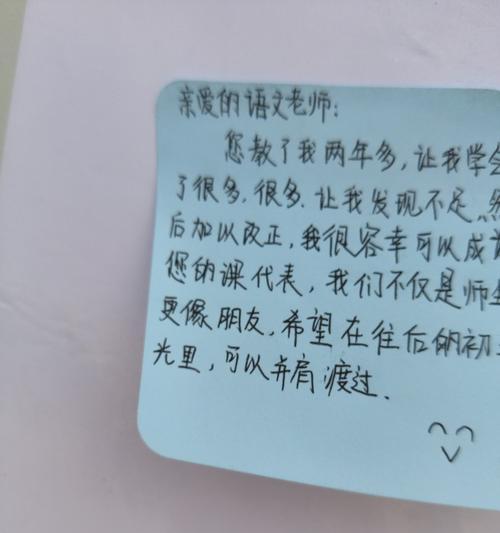 亲爱的语文老师:
您教了我两年多,让我学会
了很多.很多.让我发现不足.然
后加以改正,我很容幸可以成
您的课代表,我们不仅是师生
更像朋友,希望在往后的初
光里,可以并肩渡过.